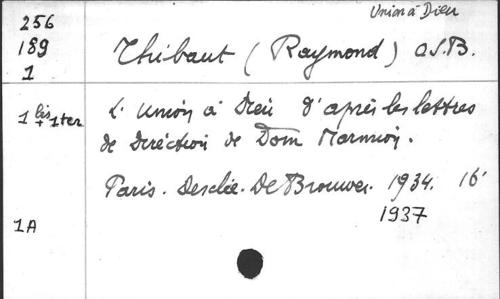 Union à Dieu
256
189
1
Thibaut (Raymond) O.S.B.
1 bis + 1 ter
L'Union à Dieu d'après les lettres
de Direction de Dom Marmion.
Paris. Desclée. De Brouwer. 1934. 16°
1937
1A